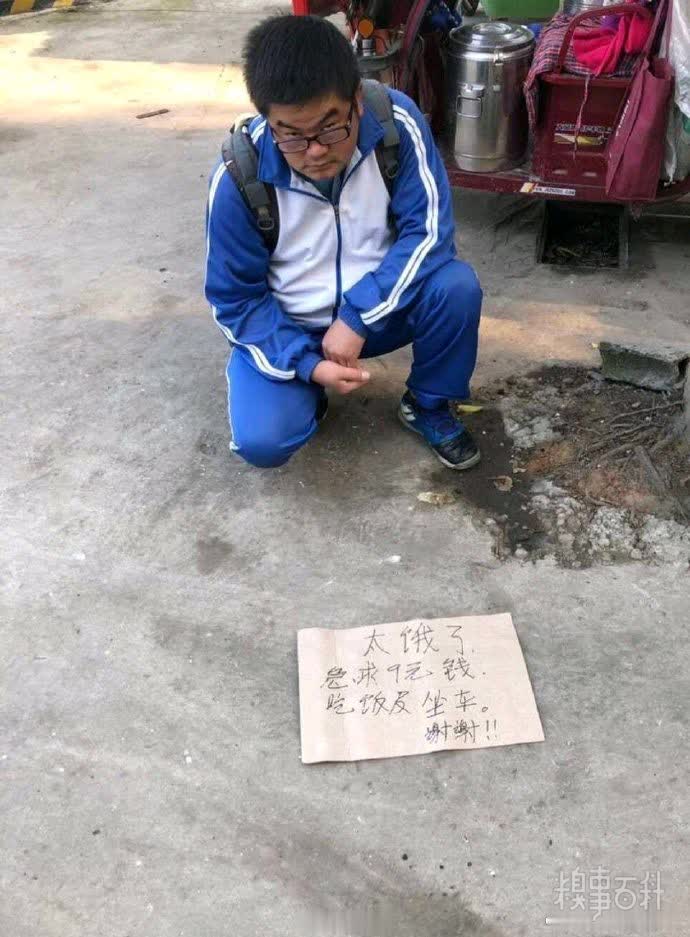 太饿了.
急求9元钱.
吃饭及坐车。
谢谢!!
糗事百科